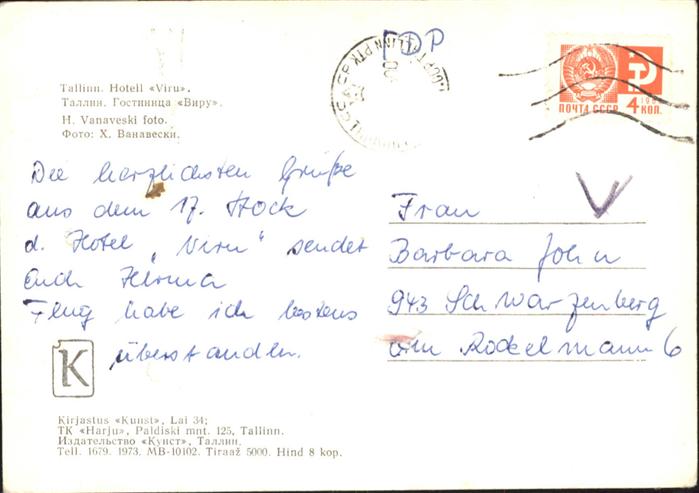 Tallinn. Hotell «Viru».
Таллин. Гостиница «Виру».
H. Vanaveski foto.
Фото: Х. Ванавески.
ГДР
ПОЧТА СССР 4 КОП.
Die herzlichsten Grüße
aus dem 17. Stock
d. Hotel „Viru" sendet
Euch
Flug habe ich bestens
überstanden.
K
Frau
Barbara John
943 Schwarzenberg
am Rockelmann 6
Kirjastus «Kunst», Lai 34;
TK «Harju», Paldiski mnt. 125, Tallinn.
Издательство «Кунст», Таллин.
Tell. 1679. 1973. MB-10102. Tiraaž 5000. Hind 8 kop.